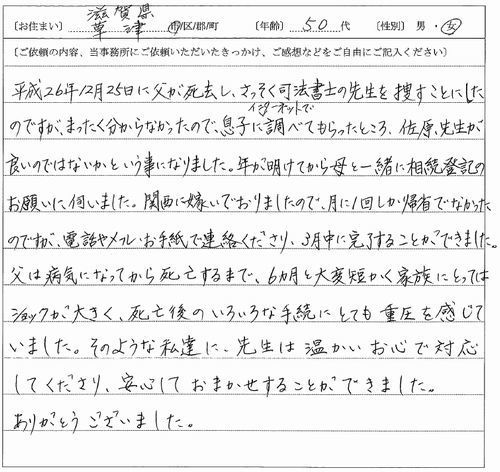 [お住まい] 滋賀県
草津 市/区/郡/町 [年齢] 50 代 [性別] 男・女
[ご依頼の内容、当事務所にご依頼いただいたきっかけ、ご感想などをご自由にご記入ください]
平成26年12月25日に父が死去し、さっそく司法書士の先生を捜すことにした
インターネットで
のですが、まったく分からなかったので、息子に調べてもらったところ、佐原先生が
良いのではないかという事になりました。年が明けてから母と一緒に相続登記の
お願いに伺いました。関西に嫁いでおりましたので、月に1回しか帰省でなかった
のですが、電話やメール・お手紙で連絡くださり、3月中に完了することができました。
父は病気になってから死亡するまで、6カ月と大変短かく家族にとっては
ショックが大きく、死亡後のいろいろな手続にとても重圧を感じて
いました。そのような私達に、先生は温かいお心で対応
してくださり、安心しておまかせすることができました。
ありがとうございました。